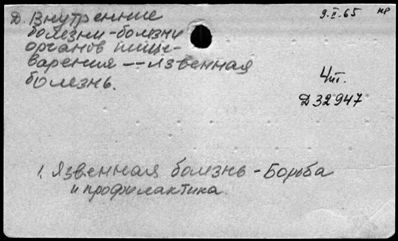 Д. Внутренние
болезни-болезни
органов пище-
варения — язвенная
болезнь.
9.II.65 нр
4 чт.
Д 32 947
1. Язвенная болезнь - Борьба
и профилактика